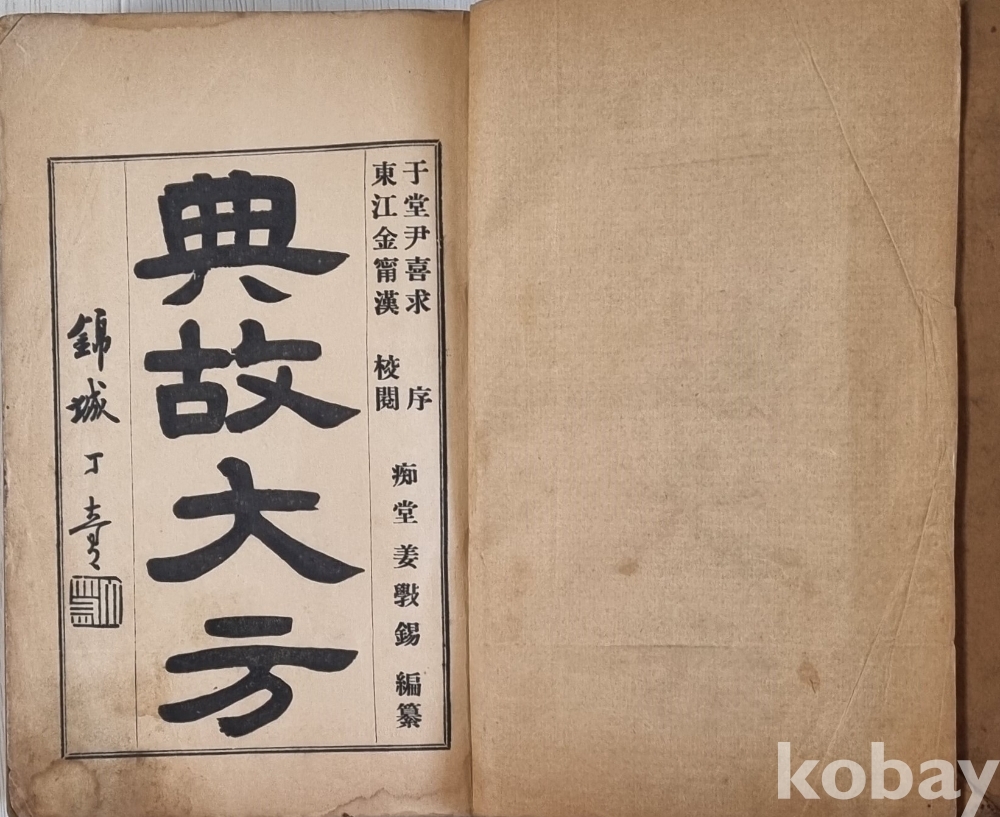 于堂尹喜求 序
東江金甯漢 校閱
痴堂姜斅錫 編纂
典故大方
錦城丁
kobay